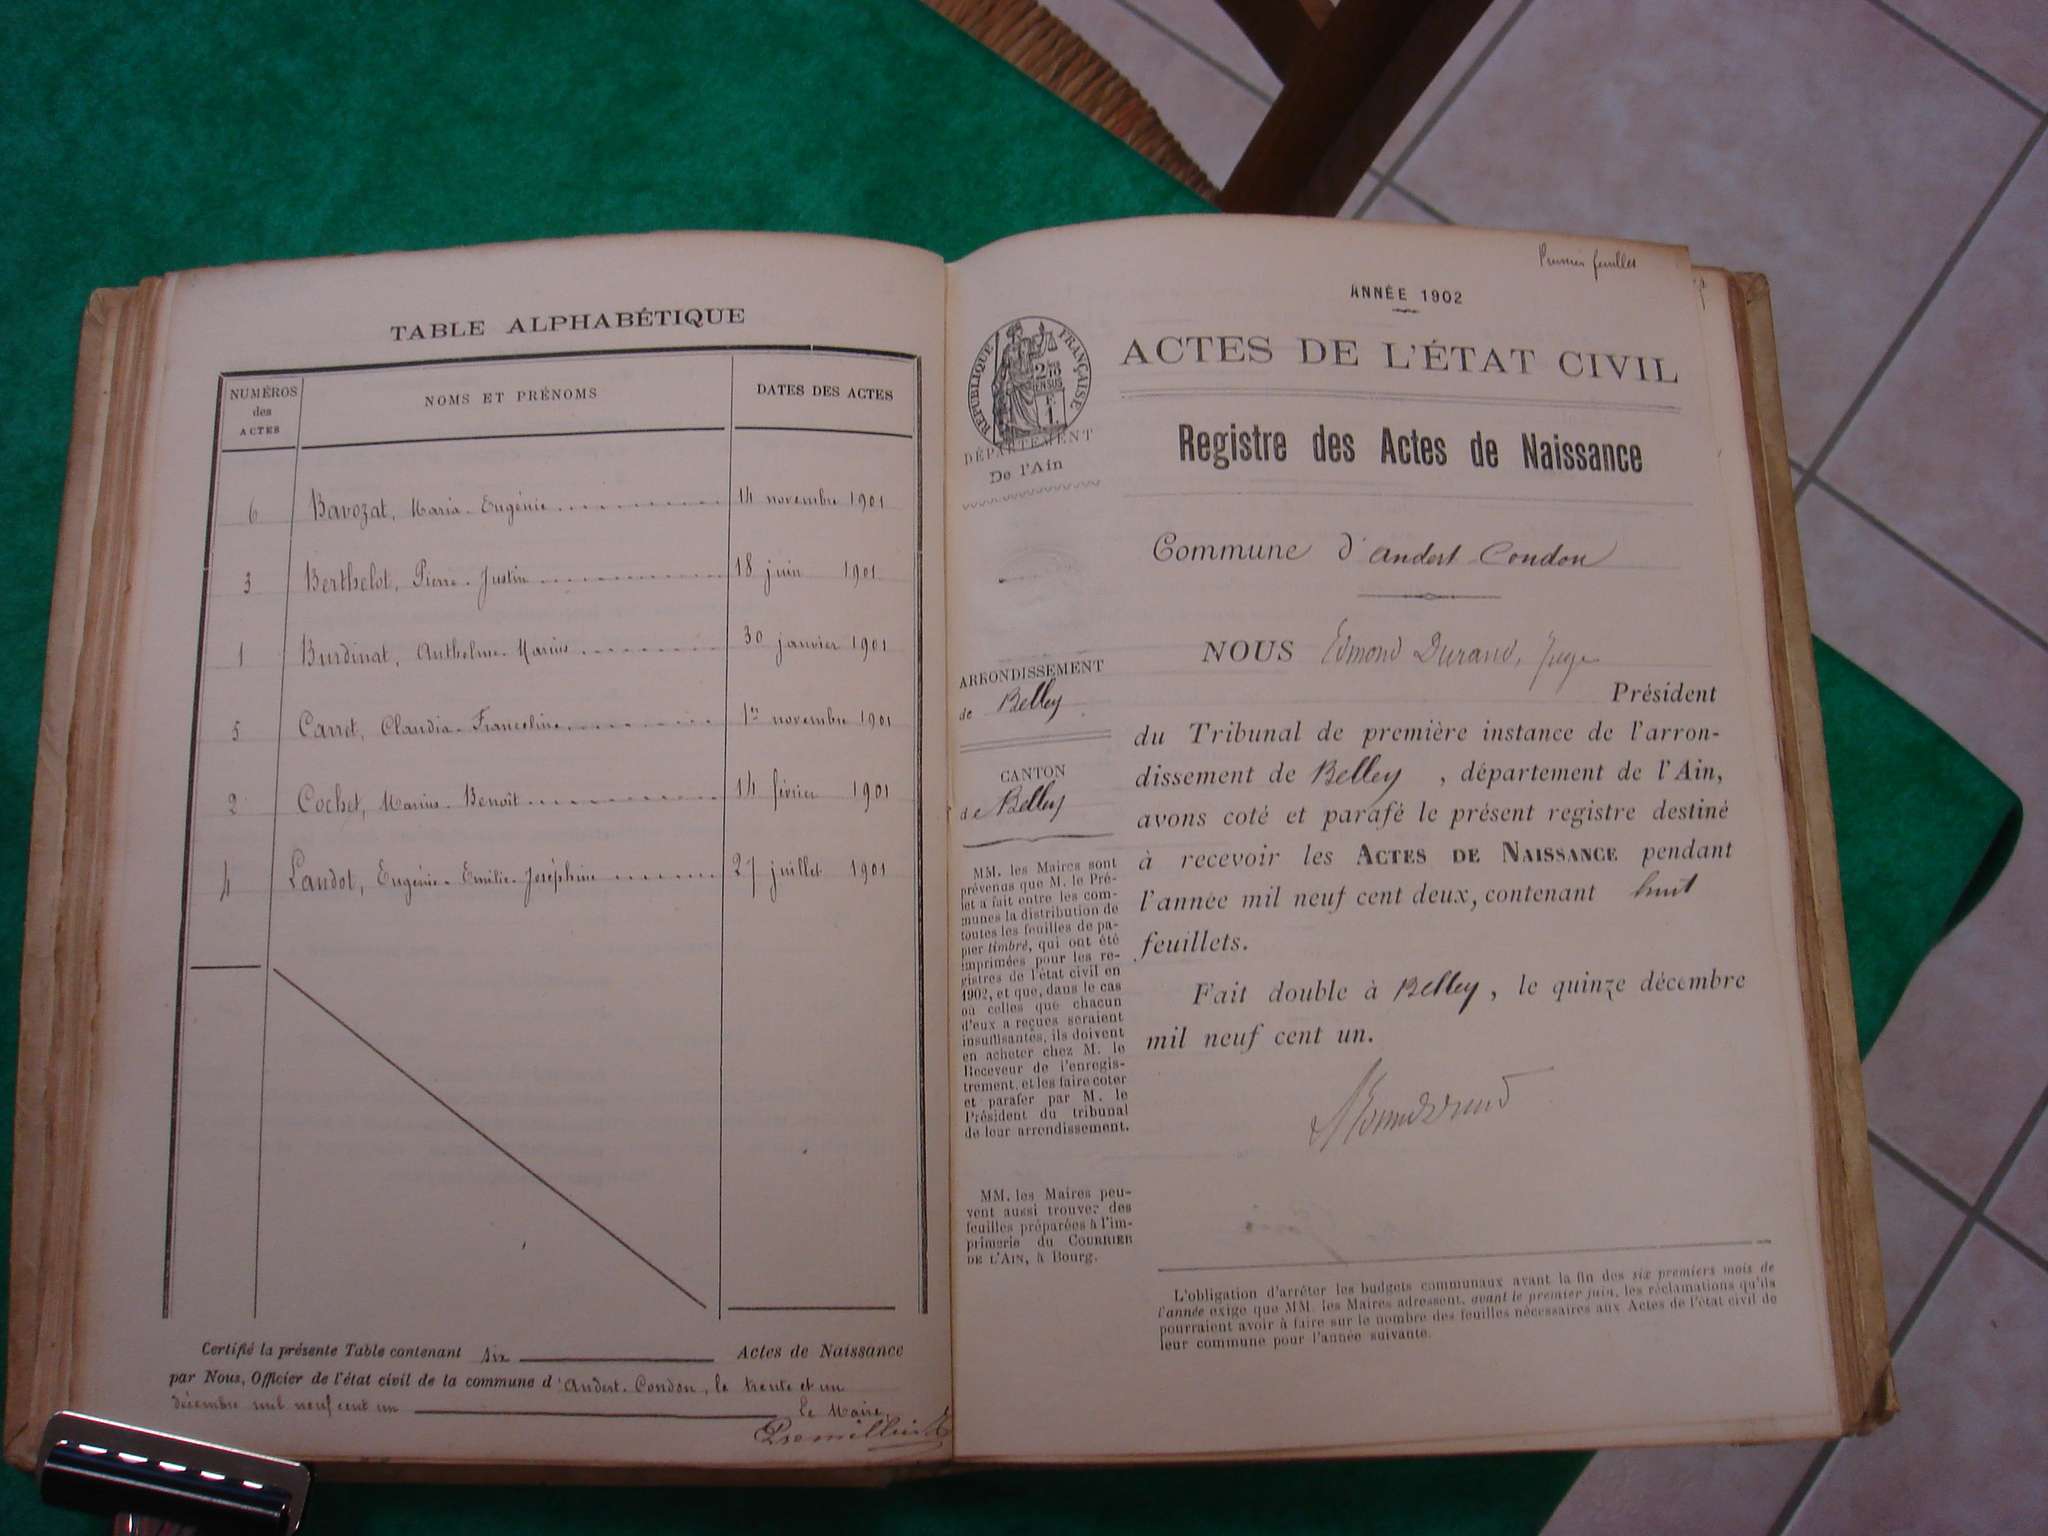 TABLE ALPHABÉTIQUE
NUMÉROS
des
ACTES
NOMS ET PRÉNOMS
DATES DES ACTES
6 Bavozat, Maria-Eugénie 14 novembre 1901
3 Berthelot, Pierre-Justin 18 juin 1901
1 Burdinat, Anthelme-Marius 30 janvier 1901
5 Carret, Claudia-Franceline 1er novembre 1901
2 Cochet, Marius-Benoît 14 février 1901
4 Landot, Eugénie-Emilie-Joséphine 27 juillet 1901
Certifié la présente Table contenant six Actes de Naissance
par Nous, Officier de l'état civil de la commune d'Andert-Condon, le trente et un
décembre mil neuf cent un le Maire,
Premier feuillet
ANNÉE 1902
RÉPUBLIQUE FRANÇAISE
DÉPARTEMENT
De l'Ain
ACTES DE L'ÉTAT CIVIL
Registre des Actes de Naissance
Commune d'Andert Condon
ARRONDISSEMENT
de Belley
CANTON
de Belley
MM. les Maires sont
prévenus que M. le Pré-
fet a fait entre les com-
munes la distribution de
toutes les feuilles de pa-
pier timbré, qui ont été
imprimées pour les re-
gistres de l'état civil en
1902, et que, dans le cas
où celles que chacun
d'eux a reçues seraient
insuffisantes, ils doivent
en acheter chez M. le
Receveur de l'enregis-
trement, et les faire coter
et parafer par M. le
Président du tribunal
de leur arrondissement.
MM. les Maires peu-
vent aussi trouver des
feuilles préparées à l'im-
primerie du COURRIER
DE L'AIN, à Bourg.
NOUS Edmond Durand, Juge
Président
du Tribunal de première instance de l'arron-
dissement de Belley, département de l'Ain,
avons coté et parafé le présent registre destiné
à recevoir les ACTES DE NAISSANCE pendant
l'année mil neuf cent deux, contenant huit
feuillets.
Fait double à Belley, le quinze décembre
mil neuf cent un.
L'obligation d'arrêter les budgets communaux avant la fin des six premiers mois de
l'année exige que MM. les Maires adressent, avant le premier juin, les réclamations qu'ils
pourraient avoir à faire sur le nombre des feuilles nécessaires aux Actes de l'état civil de
leur commune pour l'année suivante.